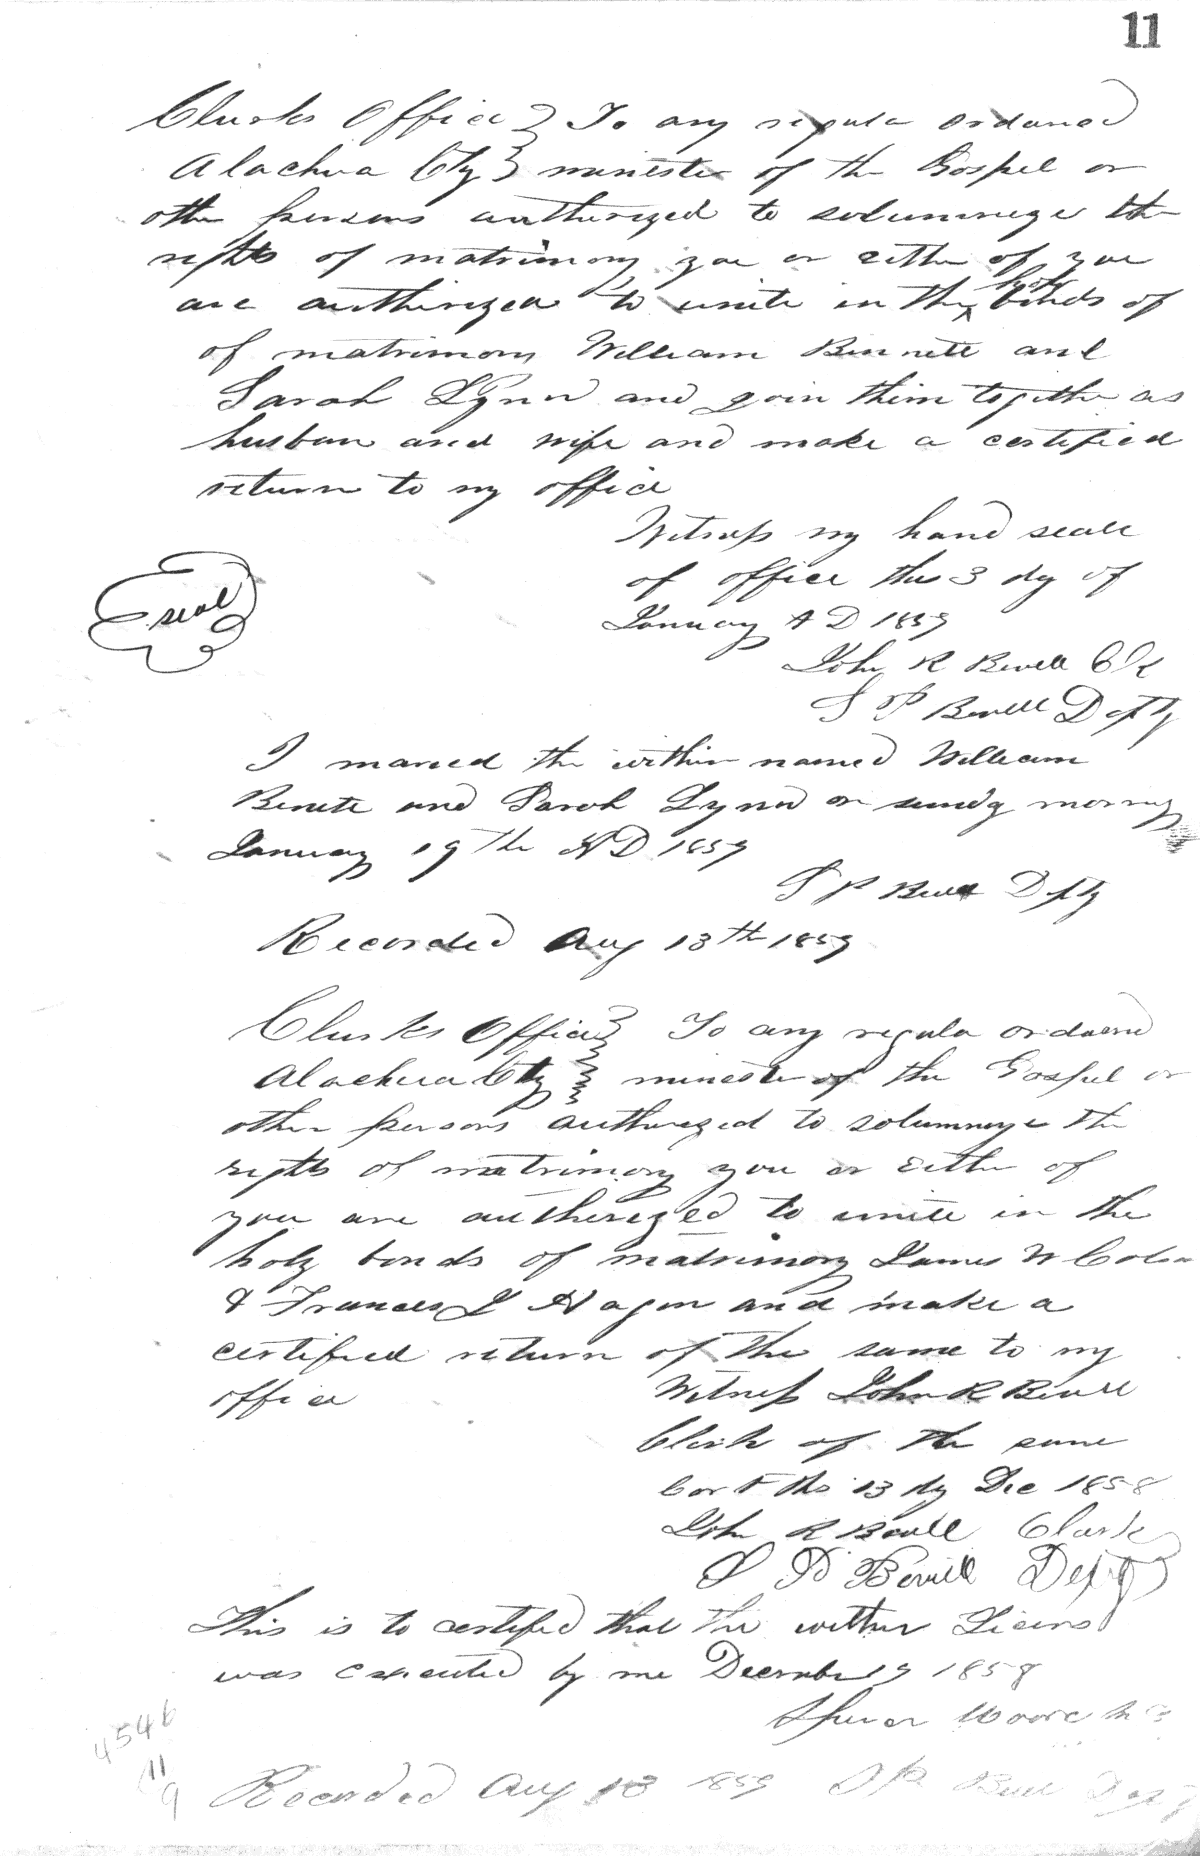 11
Clurks Office } To any regula ordaned
Alachua Cty } minister of the Gospel or
othe persons authurized to solumnize the
rights of matrimony you or eithe of you
are authirized to unite in the holy bonds of
of matrimony William Bennett and
Sarah Lynn and join them togethe as
husban and wife and make a certified
return to my office
Witness my hand seale
of office this 3 dy of
January A D 1859
seal
John R Bevill Clk
S P Bevill Depty
I maried the within named William
Benete and Sarah Lynn on sundy morning
January 19th AD 1859
S P Bevill Dpty
Recorded Aug 13th 1859
Clurks Office } To any regula ordaend
Alachua Cty } ministe of the Gospel or
other persons authurized to solumnize the
rights of matrimony you or eithe of
you are autherized to unite in the
holy bonds of matrimony James W
& Frances J Hagan and make a
certified return of the same to my
office
Witness John R Bevill
Clerk of the same
Cort this 13 dy Dec 1858
John R Bevill Clark
S P Bevill Depty
This is to certified that the within Licens
was executed by me December 19 1858
Moore
4546
11
9
Recorded Aug 13 1859 S P Bevill Depty